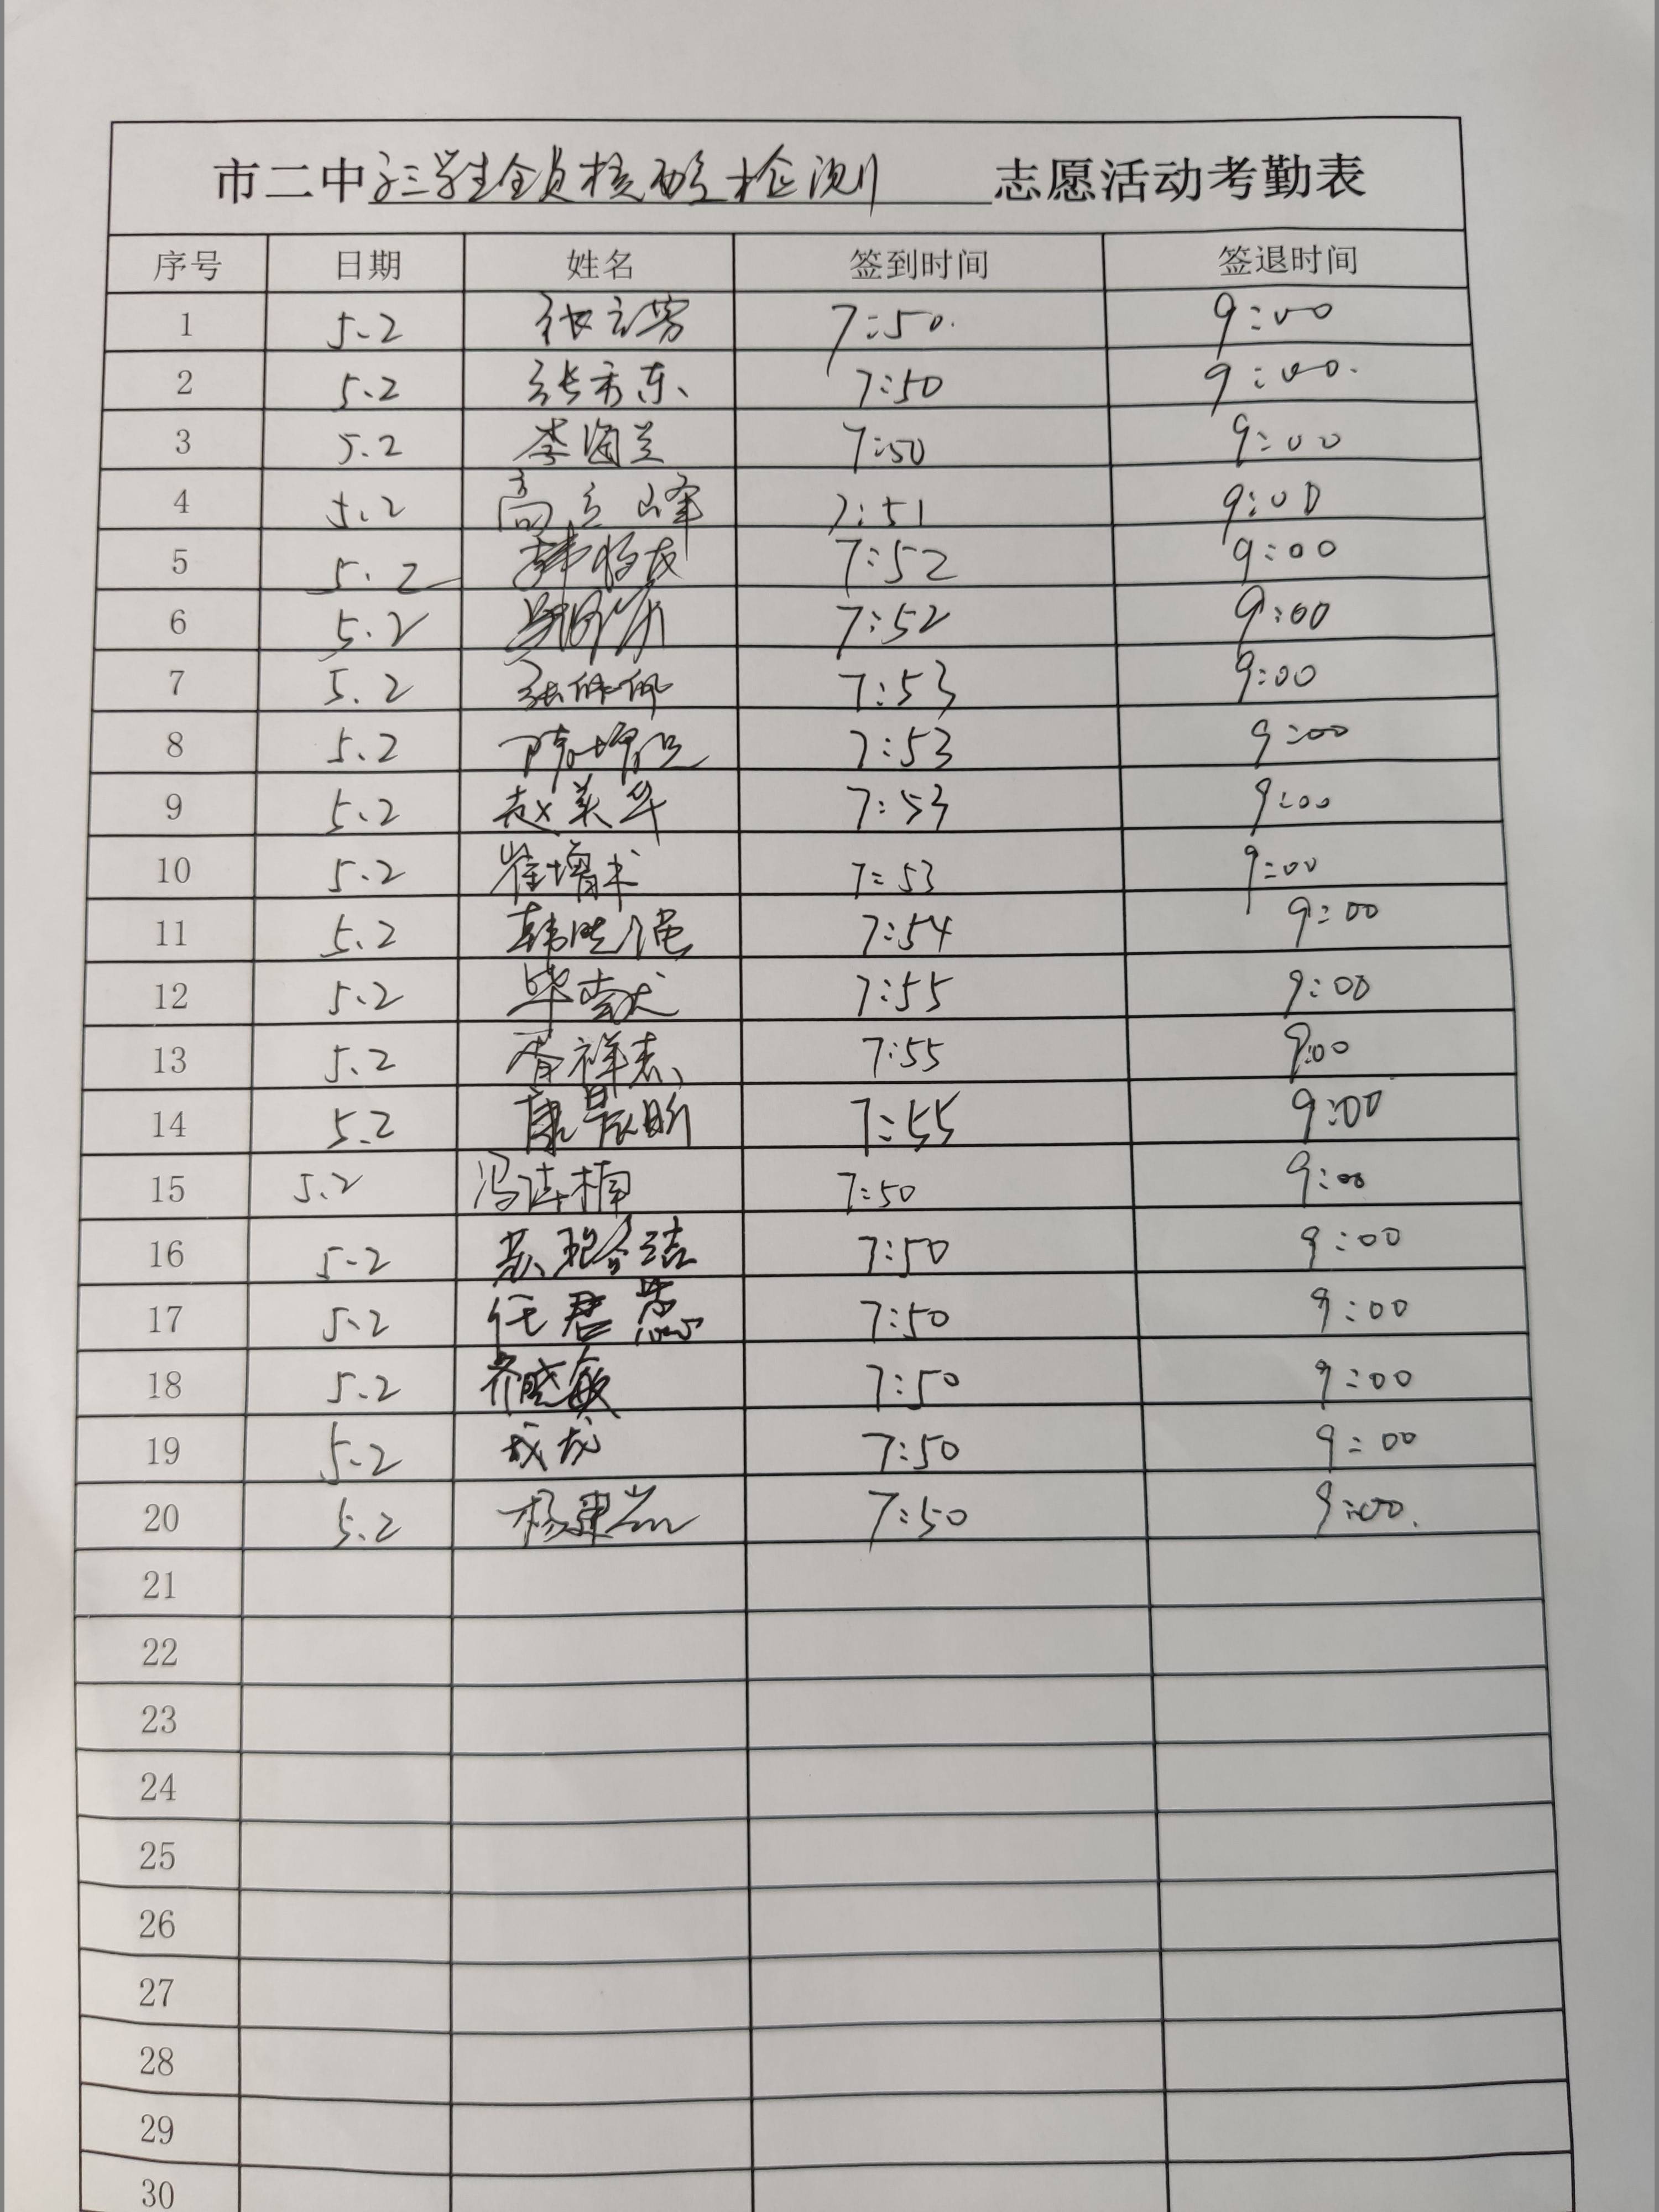 市二中高三学生全员核酸检测 志愿活动考勤表
序号 日期 姓名 签到时间 签退时间
1 5.2 张立芳 7:50. 9:00
2 5.2 张秀东 7:50 9:00.
3 5.2 李海兰 7:50 9:00
4 5.2 高立峰 7:51 9:00
5 5.2 韩 7:52 9:00
6 5.2 7:52 9:00
7 5.2 张佩佩 7:53 9:00
8 5.2 陈增 7:53 9:00
9 5.2 赵美华 7:53 9:00
10 5.2 崔增术 7:53 9:00
11 5.2 韩晓强 7:54 9:00
12 5.2 毕 7:55 9:00
13 5.2 祥志 7:55 9:00
14 5.2 康晨昕 7:55 9:00
15 5.2 冯连楠 7:50 9:00
16 5.2 苏 7:50 9:00
17 5.2 任君慧 7:50 9:00
18 5.2 齐晓敏 7:50 9:00
19 5.2 成龙 7:50 9:00
20 5.2 杨建 7:50 9:00.
21
22
23
24
25
26
27
28
29
30